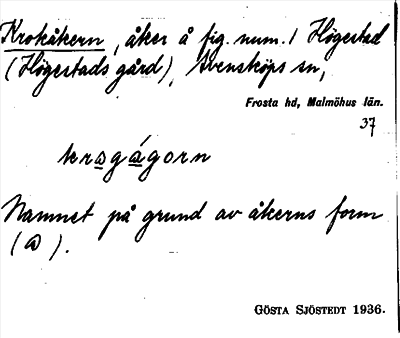 Krokåkern, åker å fig. num. 1 Högestad
(Högestads gård), Svensköps sn,
Frosta hd, Malmöhus län.
37
krogágorn
Namnet på grund av åkerns form
(a).
GÖSTA SJÖSTEDT 1936.